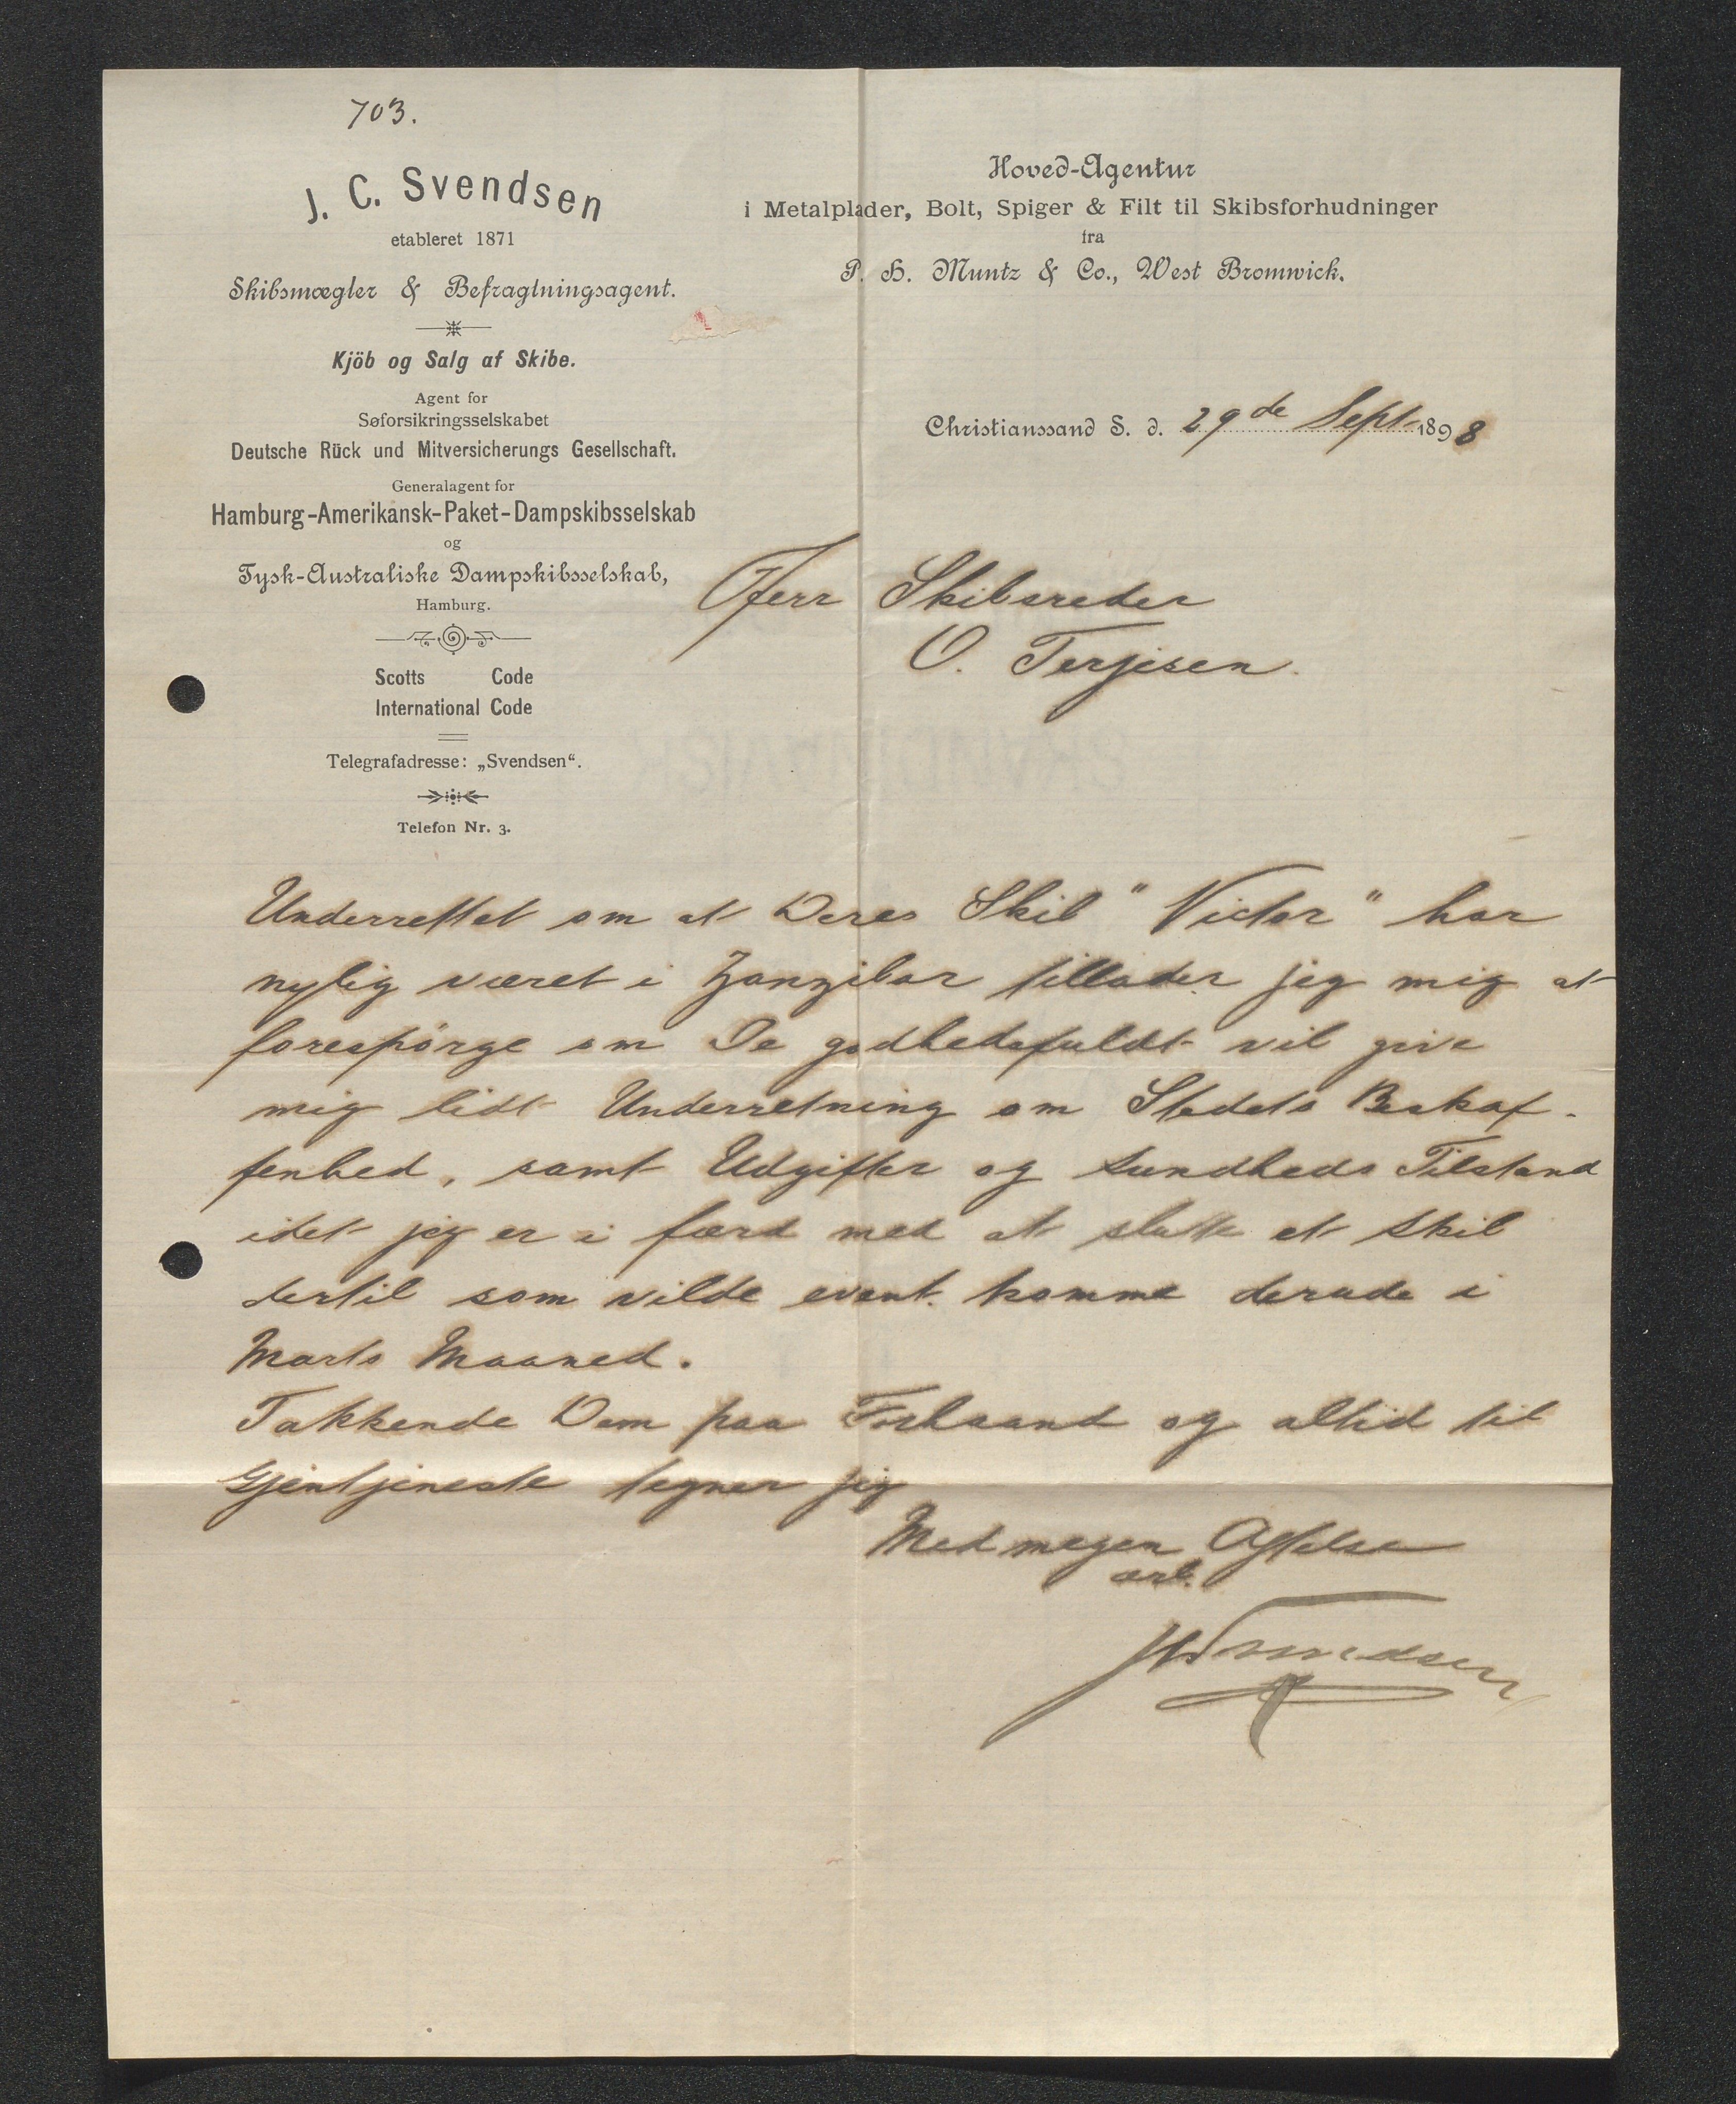 703.
J. C. Svendsen
etableret 1871
Skibsmægler & Befragtningsagent.
Kjöb og Salg af Skibe.
Agent for
Søforsikringsselskabet
Deutsche Rück und Mitversicherungs Gesellschaft.
Generalagent for
Hamburg-Amerikansk-Paket-Dampskibsselskab
og
Tysk-Australiske Dampskibsselskab,
Hamburg.
Scotts Code
International Code
Telegrafadresse: „Svendsen“.
Telefon Nr. 3.
Hoved-Agentur
i Metalplader, Bolt, Spiger & Filt til Skibsforhudninger
fra
P. H. Muntz & Co., West Bromwick.
Christianssand S. d. 29de Sept. 1898
Herr Skibsreder
O. Terjesen.
Underrettet om at Deres Skib "Victor" har
nylig været i Zanzibar tillader jeg mig at
forespörge om De godhedsfuldt vil give
mig lidt Underretning om Stedets Beskaf-
fenhed, samt Udgifter og Sundheds Tilstand
idet jeg er i færd med at slutte et Skib
dertil som vilde event. komme derude i
Marts Maaned.
Takkende Dem paa Forhaand og altid til
Gjentjeneste tegner jeg
Med megen Agtelse
ærb.
JCSvendsen